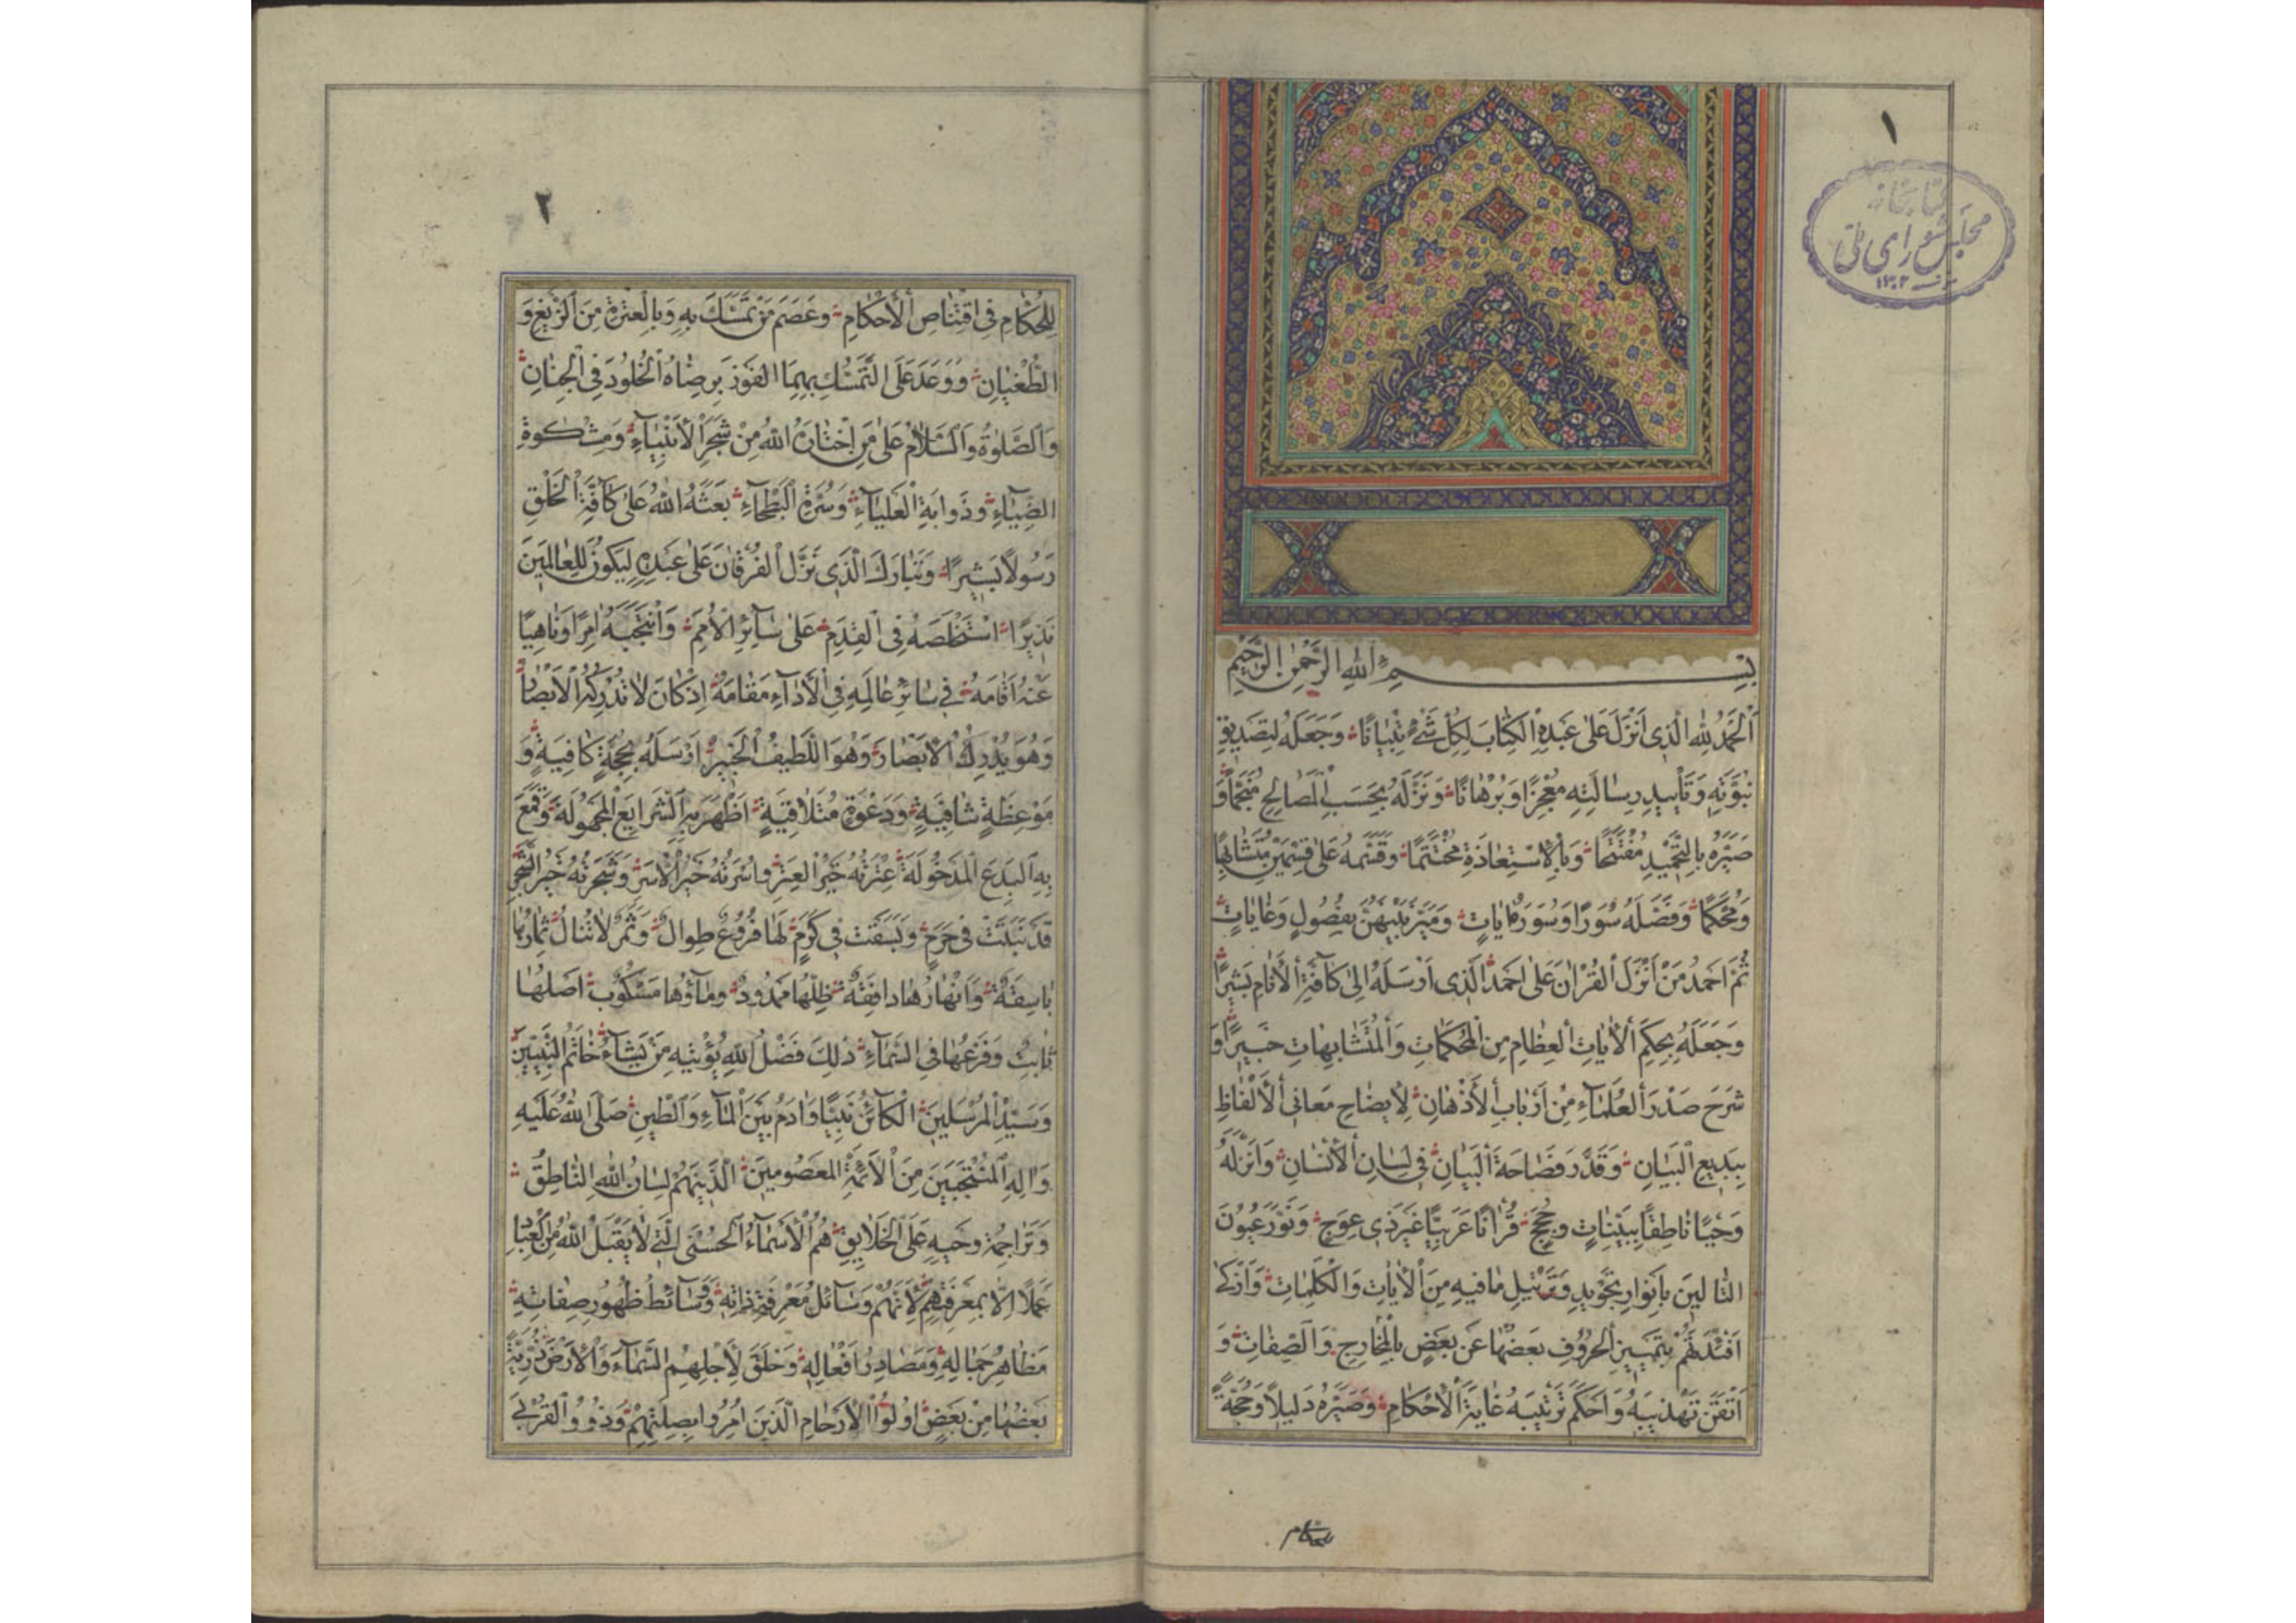 ١
كتابخانه
مجلس شورای ملی
سنه ١٣٠٢
بِسْمِ اللهِ الرَّحْمٰنِ الرَّحِيمِ
اَلْحَمْدُ لِلّٰهِ الَّذِى اَنْزَلَ عَلىٰ عَبْدِهِ الْكِتَابَ لِكُلِّ شَىْءٍ تِبْيَانًا وَجَعَلَهُ لِتَصْدِيقِ
نُبُوَّتِهِ وَتَأْيِيدِ رِسَالَتِهِ مُعْجِزًا وَبُرْهَانًا وَنَزَّلَهُ بِحَسَبِ الْمَصَالِحِ مُنَجَّمًا وَ
صَيَّرَهُ بِالتَّحْمِيدِ مُفْتَتَحًا وَبِالْاِسْتِعَاذَةِ مُخْتَتَمًا وَقَسَّمَهُ عَلىٰ قِسْمَيْنِ مُتَشَابِهًا
وَمُحْكَمًا وَفَصَّلَهُ سُوَرًا وَسُوَرَهُ اٰيَاتٍ وَمَيَّزَ بَيْنَهُنَّ بِفُصُولٍ وَغَايَاتٍ
ثُمَّ اَحْمَدُ مَنْ اَنْزَلَ الْقُرْاٰنَ عَلىٰ اَحْمَدَ الَّذِى اَرْسَلَهُ اِلىٰ كَآفَّةِ الْأَنَامِ بَشِيرًا
وَجَعَلَهُ بِحِكَمِ الْاٰيَاتِ الْعِظَامِ مِنَ الْمُحْكَمَاتِ وَالْمُتَشَابِهَاتِ خَبِيرًا وَ
شَرَحَ صَدْرَ الْعُلَمَآءِ مِنْ اَرْبَابِ الْأَذْهَانِ لِاِيضَاحِ مَعَانِى الْأَلْفَاظِ
بِبَدِيعِ الْبَيَانِ وَقَدَّرَ فَصَاحَةَ الْبَيَانِ فِى لِسَانِ الْاِنْسَانِ وَاَنْزَلَهُ
وَحْيًا نَاطِقًا بِبَيِّنَاتٍ وَحُجَجٍ قُرْاٰنًا عَرَبِيًّا غَيْرَ ذِى عِوَجٍ وَنَوَّرَ عُيُونَ
التَّالِينَ بِاَنْوَارِ تَجْوِيدِ وَتَرْتِيلِ مَا فِيهِ مِنَ الْاٰيَاتِ وَالْكَلِمَاتِ وَاَزْكىٰ
اَفْئِدَتَهُمْ بِتَمْيِيزِ الْحُرُوفِ بَعْضَهَا عَنْ بَعْضٍ بِالْمَخَارِجِ وَالصِّفَاتِ وَ
اَتْقَنَ تَهْذِيبَهُ وَاَحْكَمَ تَرْتِيبَهُ غَايَةَ الْاَحْكَامِ وَصَيَّرَهُ دَلِيلًا وَحُجَّةً
للحكام
٢
لِلْحُكَّامِ فِى اقْتِنَاصِ الْأَحْكَامِ وَعَصَمَ مَنْ تَمَسَّكَ بِهِ وَبِالْعِتْرَةِ مِنَ الزَّيْغِ وَ
الطُّغْيَانِ وَوَعَدَ عَلَى التَّمَسُّكِ بِهِمَا الْفَوْزَ بِرِضَاهُ الْخُلُودَ فِى الْجِنَانِ
وَالصَّلٰوةُ وَالسَّلَامُ عَلىٰ مَنِ اخْتَارَهُ اللهُ مِنْ شَجَرِ الْأَنْبِيَآءِ وَمِشْكٰوةِ
الضِّيَآءِ وَذَوَابَةِ الْعَلْيَآءِ وَسُرَّةِ الْبَطْحَآءِ بَعَثَهُ اللهُ عَلىٰ كَآفَّةِ الْخَلْقِ
رَسُولًا بَشِيرًا وَتَبَارَكَ الَّذِى نَزَّلَ الْفُرْقَانَ عَلىٰ عَبْدِهِ لِيَكُونَ لِلْعَالَمِينَ
نَذِيرًا اسْتَخْلَصَهُ فِى الْقِدَمِ عَلىٰ سَآئِرِ الْاُمَمِ وَانْتَجَبَهُ اٰمِرًا وَنَاهِيًا
عَنْهُ اَقَامَهُ فِى سَائِرِ عَالَمِهِ فِى الْأَدَآءِ مَقَامَهُ اِذْ كَانَ لَا تُدْرِكُهُ الْاَبْصَارُ
وَهُوَ يُدْرِكُ الْاَبْصَارَ وَهُوَ اللَّطِيفُ الْخَبِيرُ اَرْسَلَهُ بِحُجَّةٍ كَافِيَةٍ وَ
مَوْعِظَةٍ شَافِيَةٍ وَدَعْوَةٍ مُتَلَافِيَةٍ اَظْهَرَ بِهِ الشَّرَايِعَ الْمَجْهُولَةَ وَقَمَعَ
بِهِ الْبِدَعَ الْمَدْخُولَةَ عِتْرَتُهُ خَيْرُ الْعِتَرِ وَاُسْرَتُهُ خَيْرُ الْاُسَرِ وَشَجَرَتُهُ خَيْرُ الشَّجَرِ
قَدْ نَبَتَتْ فِى حَرَمٍ وَبَسَقَتْ فِى كَرَمٍ لَهَا فُرُوعٌ طِوَالٌ وَثَمَرٌ لَا تُنَالُ ثِمَارُهَا
بَاسِقَةٌ وَاَنْهَارُهَا دَافِقَةٌ ظِلُّهَا مَمْدُودٌ وَمَآؤُهَا مَسْكُوبٌ اَصْلُهَا
ثَابِتٌ وَفَرْعُهَا فِى السَّمَآءِ ذٰلِكَ فَضْلُ اللهِ يُؤْتِيهِ مَنْ يَشَآءُ خَاتَمُ النَّبِيِّينَ
وَسَيِّدُ الْمُرْسَلِينَ الْكَآئِنُ نَبِيًّا وَاٰدَمُ بَيْنَ الْمَآءِ وَالطِّينِ صَلَّى اللهُ عَلَيْهِ
وَاٰلِهِ الْمُنْتَجَبِينَ مِنَ الْأَئِمَّةِ الْمَعْصُومِينَ الَّذِينَ هُمْ لِسَانُ اللهِ النَّاطِقُ
وَتَرَاجِمَةُ وَحْيِهِ عَلَى الْخَلَايِقِ هُمُ الْأَسْمَآءُ الْحُسْنَى الَّتِى لَا يَقْبَلُ اللهُ مِنَ الْعِبَادِ
عَمَلًا اِلَّا بِمَعْرِفَتِهِمْ لِأَنَّهُمْ وَسَآئِلُ مَعْرِفَةِ ذَاتِهِ وَوَسَآئِطُ ظُهُورِ صِفَاتِهِ
مَظَاهِرُ جَمَالِهِ وَمَصَادِرُ اَفْعَالِهِ وَخَلَقَ لِأَجْلِهِمُ السَّمَآءَ وَالْأَرْضَ ذُرِّيَّةً
بَعْضُهَا مِنْ بَعْضٍ اُولُوا الْأَرْحَامِ الَّذِينَ اُمِرُوا بِصِلَتِهِمْ وَذَوُوا الْقُرْبىٰ